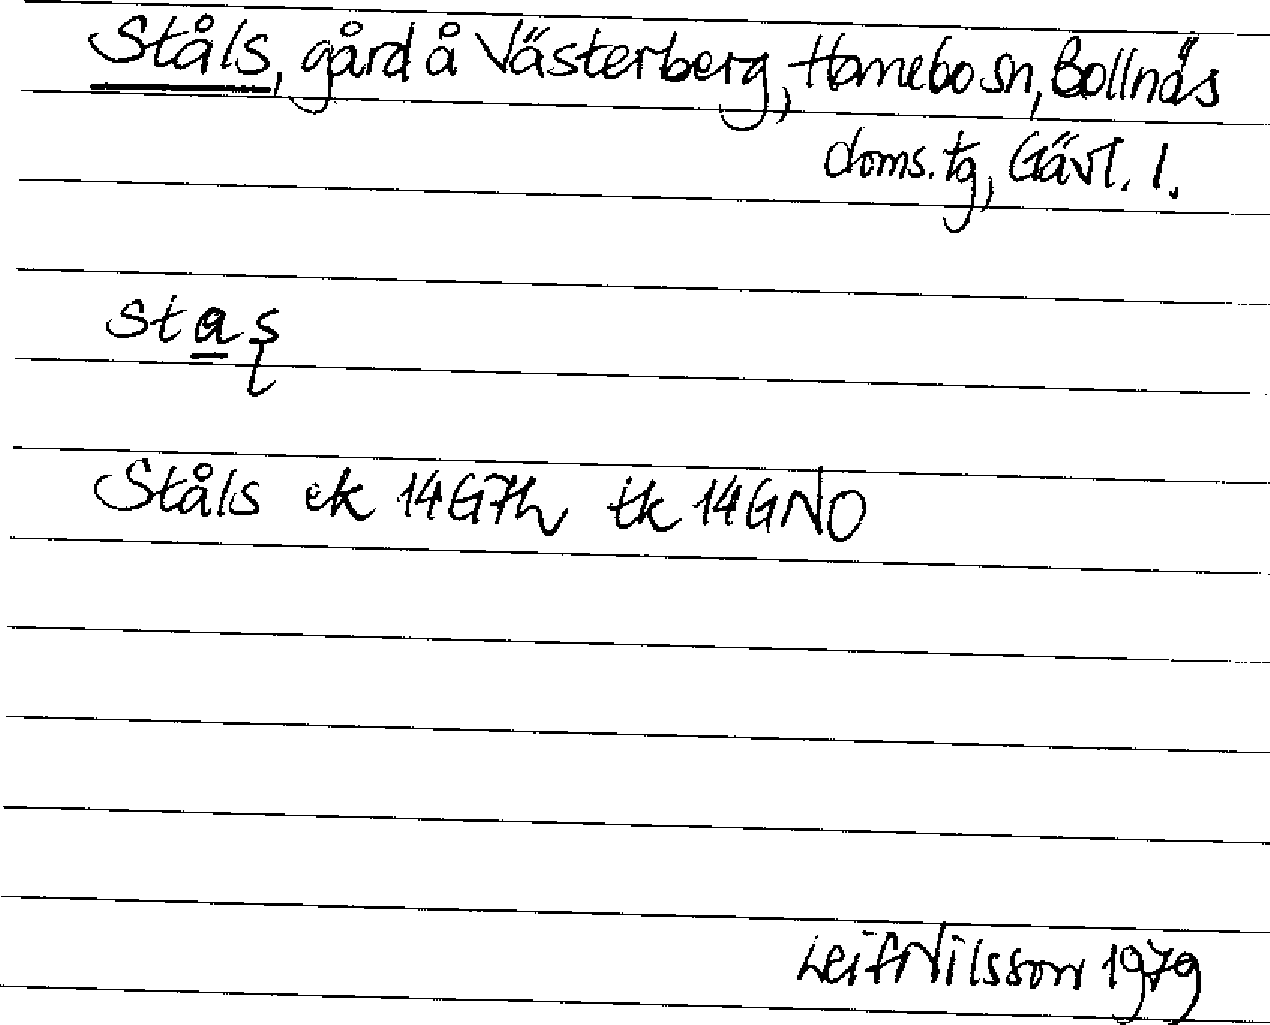 Ståls, gård å Västerberg, Hamebo sn, Bollnäs
doms. tg, Gävl. l.
Ståls ek 14G7h tk 14GNO
Leif Nilsson 1979